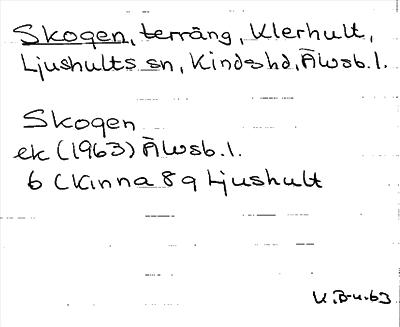 Skogen, terräng, Klerhult,
Ljushults sn, Kinds hd, Älvsb. l.
Skogen
ek (1963) Älvsb. l.
6 C Kinna 8 q Ljushult